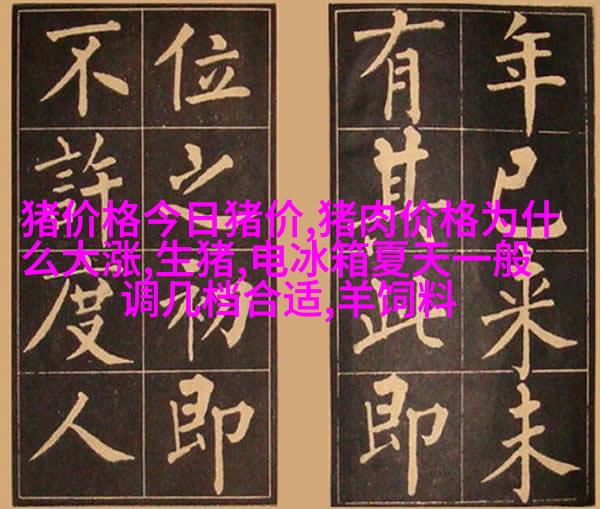 年已米未
有其此即
位之初即
不許度人
猪价格今日猪价,猪肉价格为什
么大涨,生猪,电冰箱夏天一般
调几档合适,羊饲料